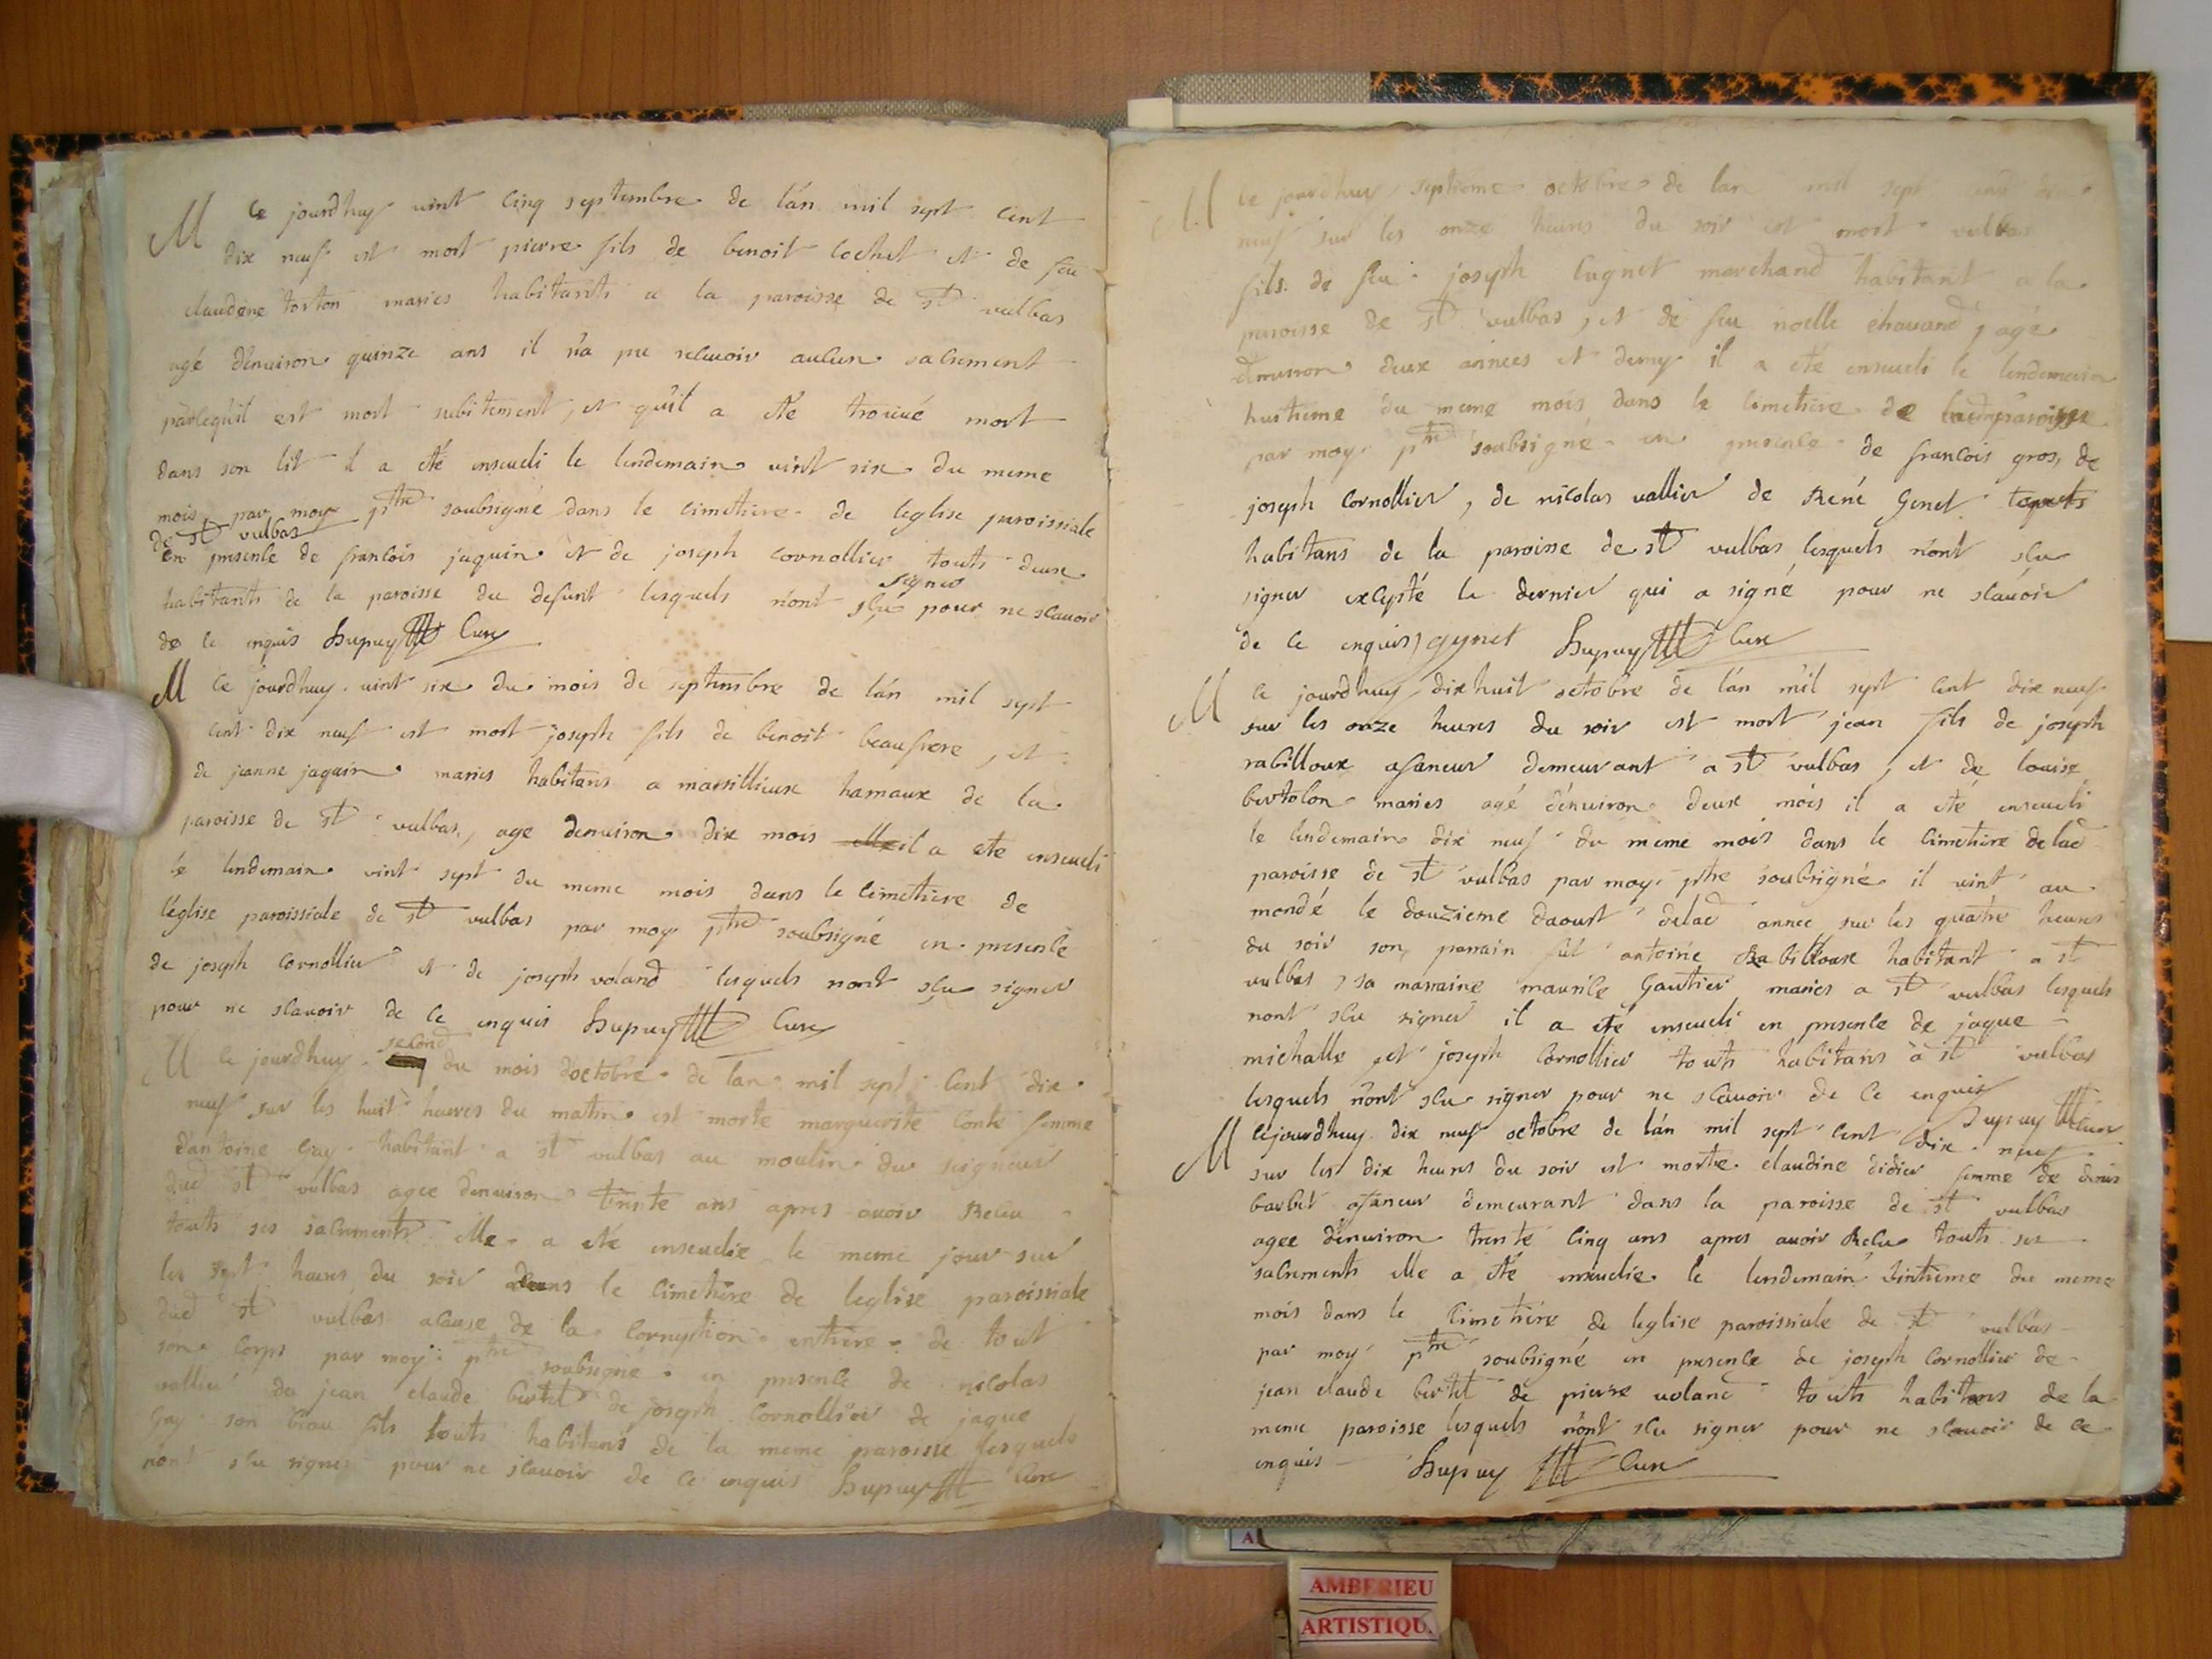 M Ce jourdhuy vint cinq septembre de l'an mil sept cent
dix neuf est mort pierre fils de benoit cochet et de feu
claudine torton maries habitants a la paroisse de st vulbas
agé d'enuiron quinze ans il n'a pu receuoir aucun sacrement
parcequ'il est mort subitement, et qu'il a eté trouué mort
dans son lit il a eté enseueli le lendemain vint six du meme
mois par moy ptre soubsigné dans le cimetiere de leglise paroissiale
de st vulbas
en presence de francois jaquin et de joseph cornollier touts deux
signer
habitants de la paroisse du defunt lesquels n'ont sçu pour ne scauoir
de ce enquis Dupuy Cure
M Ce jourdhuy vint six du mois de septembre de l'an mil sept
cent dix neuf est mort joseph fils de benoit beaufrere, et
de jeanne jaquin maries habitans a marsillieux hamaux de la
paroisse de st vulbas, age denuiron dix mois elle il a ete enseueli
le lendemain vint sept du meme mois dans le cimetiere de
l'église paroissiale de st vulbas par moy ptre soubsigné en presence
de joseph cornollier et de joseph voland lesquels nont sçu signer
pour ne scauoir de ce enquis Dupuy Cure
second
M Ce jourdhuy du mois d'octobre de lan mil sept cent dix
neuf sur les huit heures du matin est morte marguerite conte femme
dantoine Gay habitant a st vulbas au moulin du seigneur
dud st vulbas agee denuiron trente ans apres auoir Receu
touts ses sacrements elle a eté enseuelie le meme jour sur
les sept heures du soir dans le cimetiere de leglise paroissiale
dud st vulbas acause de la corruption entiere de tout
son corps par moy ptre soubsigne en presence de nicolas
vallier de jean claude bertet de joseph cornollier de jaque
Gay son beau fils touts habitans de la meme paroisse lesquels
n'ont scu signer pour ne scauoir de ce enquis Dupuy Cure
M Ce jourdhuy septieme octobre de lan mil sept cent dix
neuf sur les onze heures du soir est mort vulbas
fils de feu joseph cugnet marchand habitant a la
paroisse de st vulbas, et de feu noelle chauand, agé
denuiron deux annees et demy il a eté enseueli le lendemain
huitieme du meme mois dans le cimetiere de ladite paroisse
par moy ptre soubsigné en presence de francois gros, de
joseph Cornollier, de nicolas vallier de René Genet touts
habitans de la paroisse de st vulbas lesquels n'ont scu
signer excepté le dernier qui a signé pour ne scáuoir
de ce enquis, gynet Dupuy Cure
M Ce jourdhuy dix huit octobre de l'an mil sept cent dix neuf
sur les onze heures du soir est mort jean fils de joseph
rabilloux afaneur demeurant a st vulbas, et de louise
bertolon maries agé d'enuiron deux mois il a eté enseueli
le lendemain dix neuf du meme mois dans le cimetiere delad
paroisse de st vulbas par moy ptre soubsigné il vint au
monde le douzieme daoust delad annee sur les quatre heures
du soir son parrain fut antoine Rabilloux habitant a st
vulbas, sa marraine maurice Gautier maries a st vulbas lesquels
nont scu signer il a eté enseueli en presence de jaque
michalle et joseph Cornollier touts habitans à st vulbas
lesquels n'ont scu signer pour ne scauoir de ce enquis
Dupuy Cure
M Cejourdhuy dix neuf octobre de lán mil sept cent dix neuf
sur les dix heures du soir est morte claudine didier femme de denis
barbet afaneur demeurant dans la paroisse de st vulbas
agee d'enuiron trente cinq ans apres auoir Recu touts ses
sacrements elle a eté enseuelie le lendemain vintieme du meme
mois dans le cimetiére de leglise paroissiale de st vulbas
par moy ptre soubsigné en presence de joseph Cornollier de
jean claude bertet de pierre voland touts habitans de la
meme paroisse lesquels n'ont scu signer pour ne scauoir de ce
enquis Dupuy Cure
AMBERIEU
ARTISTIQU